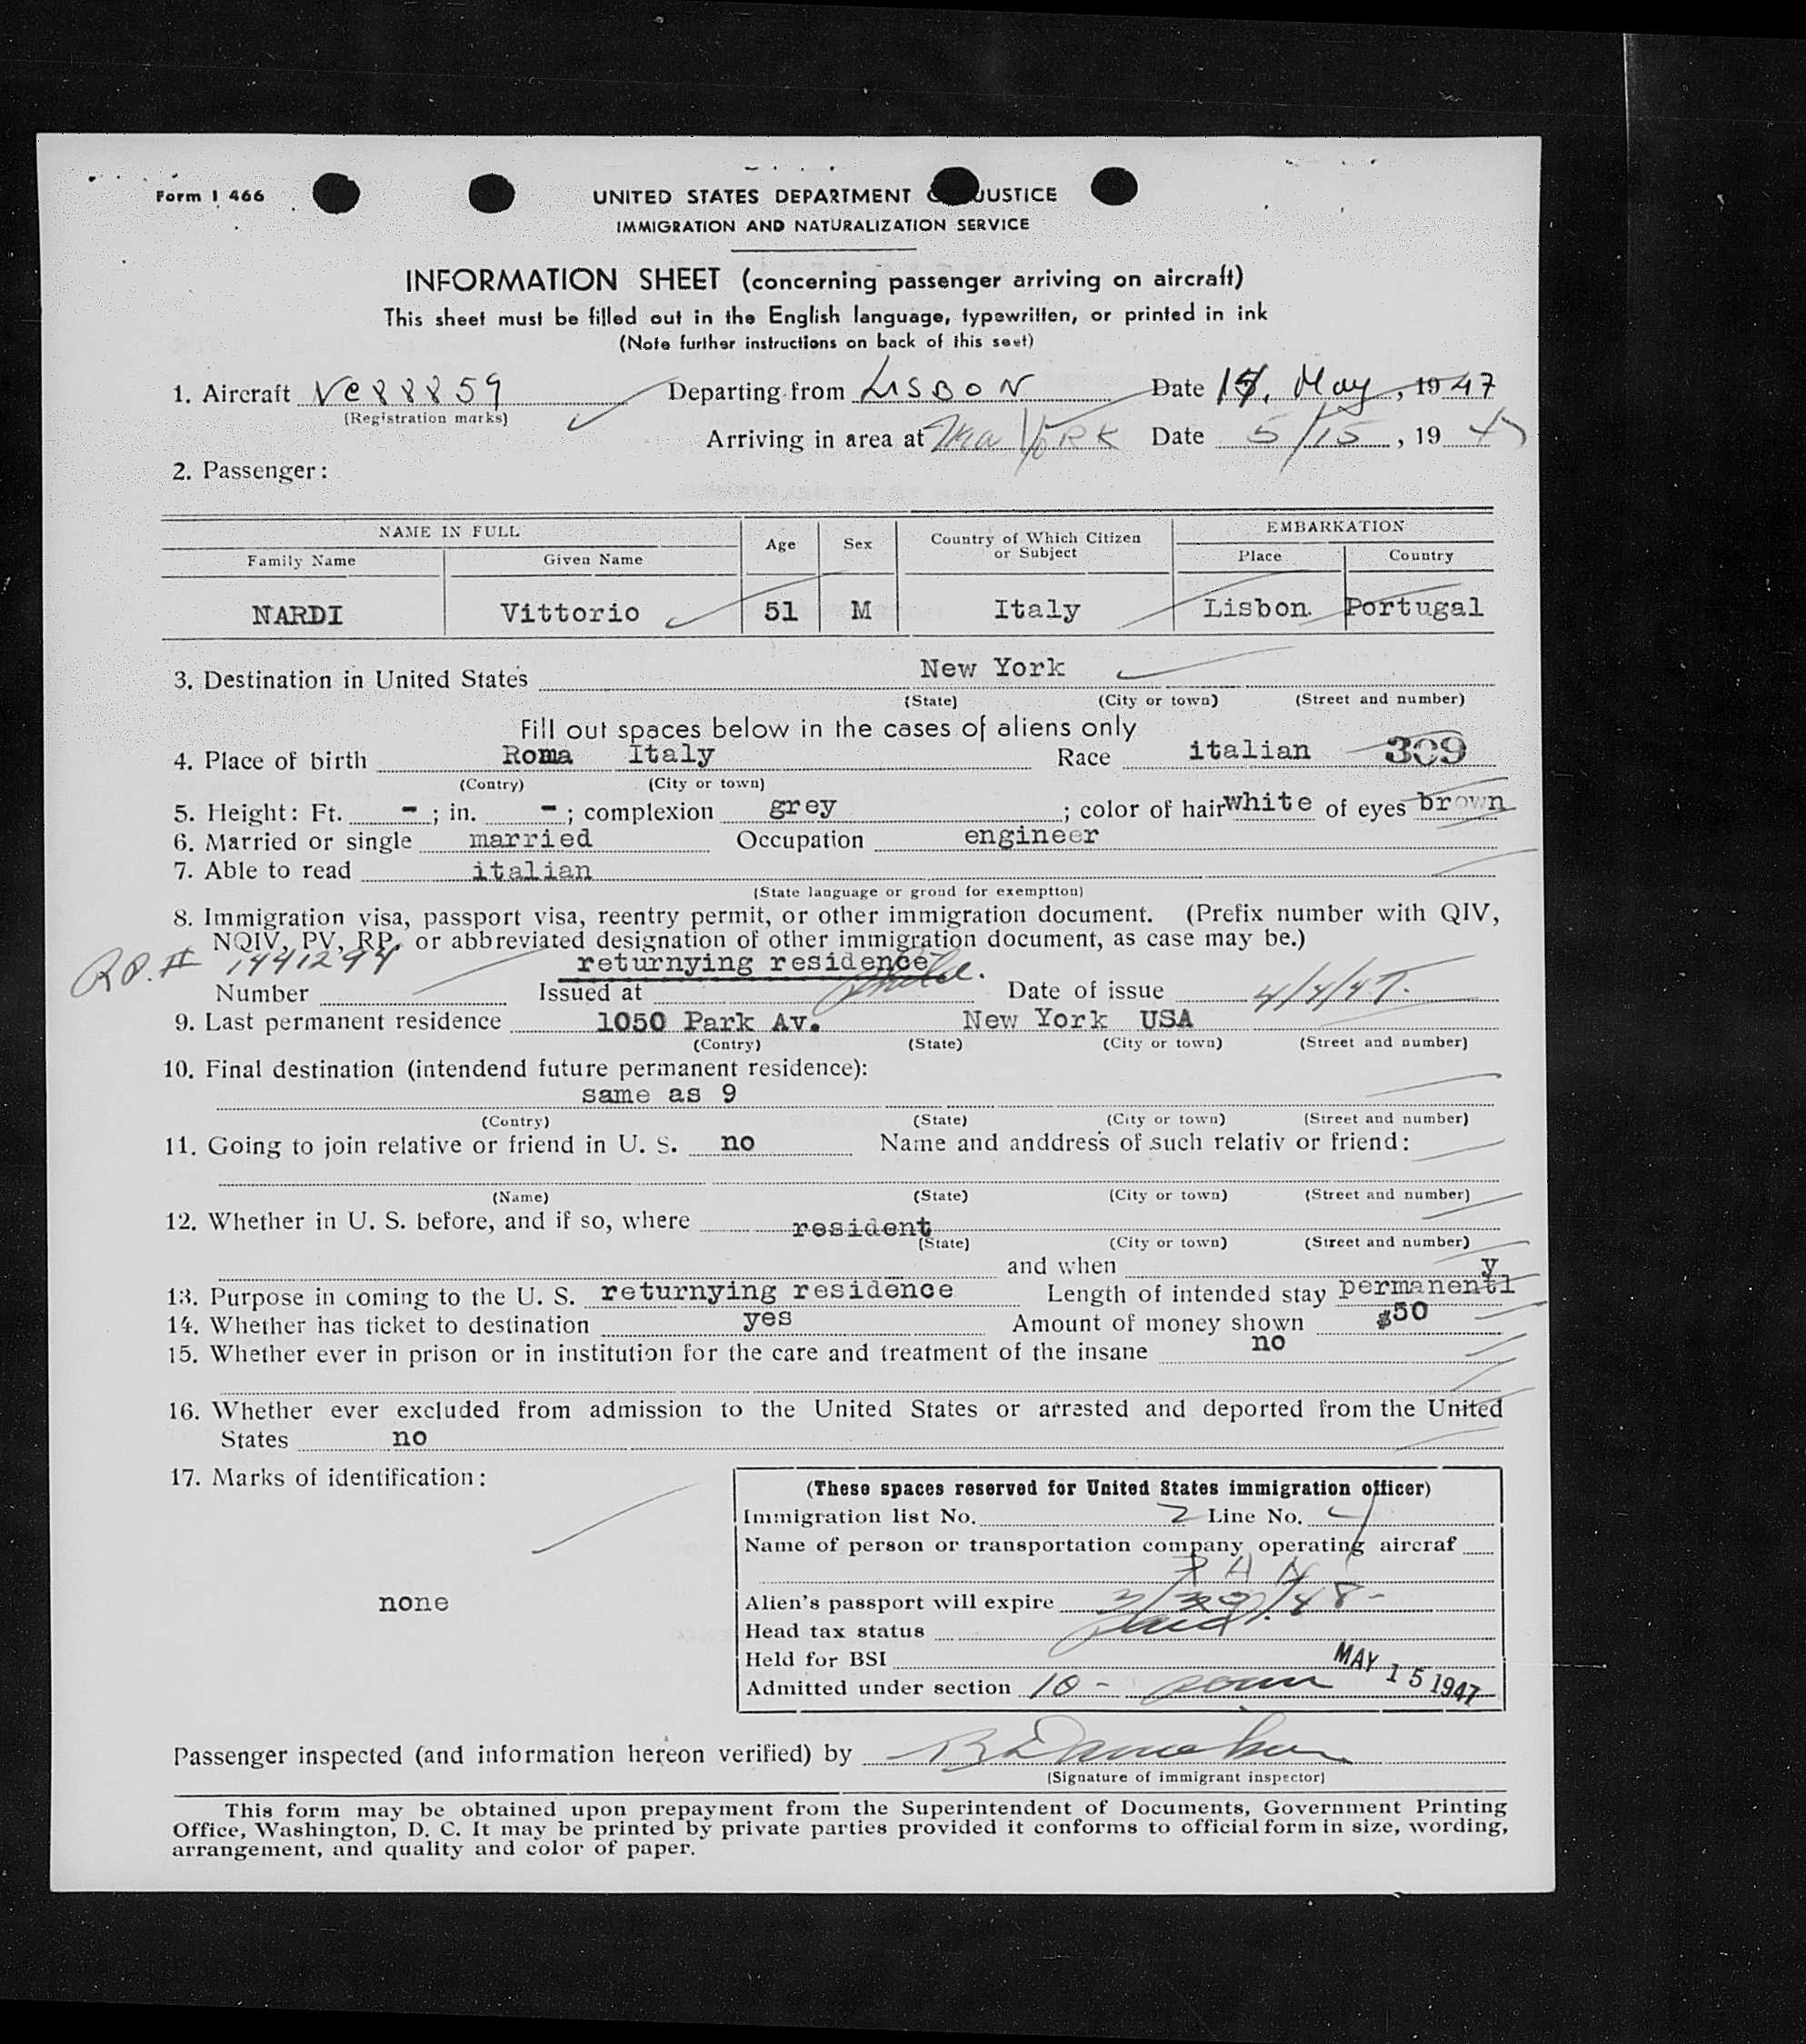 Form I 466
UNITED STATES DEPARTMENT JUSTICE
IMMIGRATION AND NATURALIZATION SERVICE
INFORMATION SHEET (concerning passenger arriving on aircraft)
This sheet must be filled out in the English language, typewritten, or printed in ink
(Note further instructions on back of this seet)
1. Aircraft NC88859 Departing from LISBON Date May, 1947
(Registration marks)
Arriving in area at New YORK Date 5/15, 1947
2. Passenger:
NAME IN FULL Age Sex Country of Which Citizen or Subject EMBARKATION
Family Name Given Name Place Country
NARDI Vittorio 51 M Italy Lisbon Portugal
3. Destination in United States New York
(State) (City or town) (Street and number)
Fill out spaces below in the cases of aliens only
4. Place of birth Roma Italy Race italian 309
(Contry) (City or town)
5. Height: Ft. - ; in. - ; complexion grey ; color of hair white of eyes brown
6. Married or single married Occupation engineer
7. Able to read italian
(State language or groud for exemptton)
8. Immigration visa, passport visa, reentry permit, or other immigration document. (Prefix number with QIV,
NQIV, PV, RP, or abbreviated designation of other immigration document, as case may be.)
RP. # 1441294 returnying residence
Number Issued at Phila. Date of issue 4/4/47.
9. Last permanent residence 1050 Park Av. New York USA
(Contry) (State) (City or town) (Street and number)
10. Final destination (intendend future permanent residence):
same as 9
(Contry) (State) (City or town) (Street and number)
11. Going to join relative or friend in U. S. no Name and anddress of such relativ or friend:
(Name) (State) (City or town) (Street and number)
12. Whether in U. S. before, and if so, where resident
(State) (City or town) (Street and number)
and when
13. Purpose in coming to the U. S. returnying residence Length of intended stay permanently
14. Whether has ticket to destination yes Amount of money shown $50
15. Whether ever in prison or in institution for the care and treatment of the insane no
16. Whether ever excluded from admission to the United States or arrested and deported from the United
States no
17. Marks of identification:
none
(These spaces reserved for United States immigration officer)
Immigration list No. 2 Line No. 4
Name of person or transportation company operating aircraf
Alien's passport will expire
Head tax status Paid
Held for BSI
Admitted under section 10 -
MAY 15 1947
Passenger inspected (and information hereon verified) by
(Signature of immigrant inspector)
This form may be obtained upon prepayment from the Superintendent of Documents, Government Printing
Office, Washington, D. C. It may be printed by private parties provided it conforms to official form in size, wording,
arrangement, and quality and color of paper.